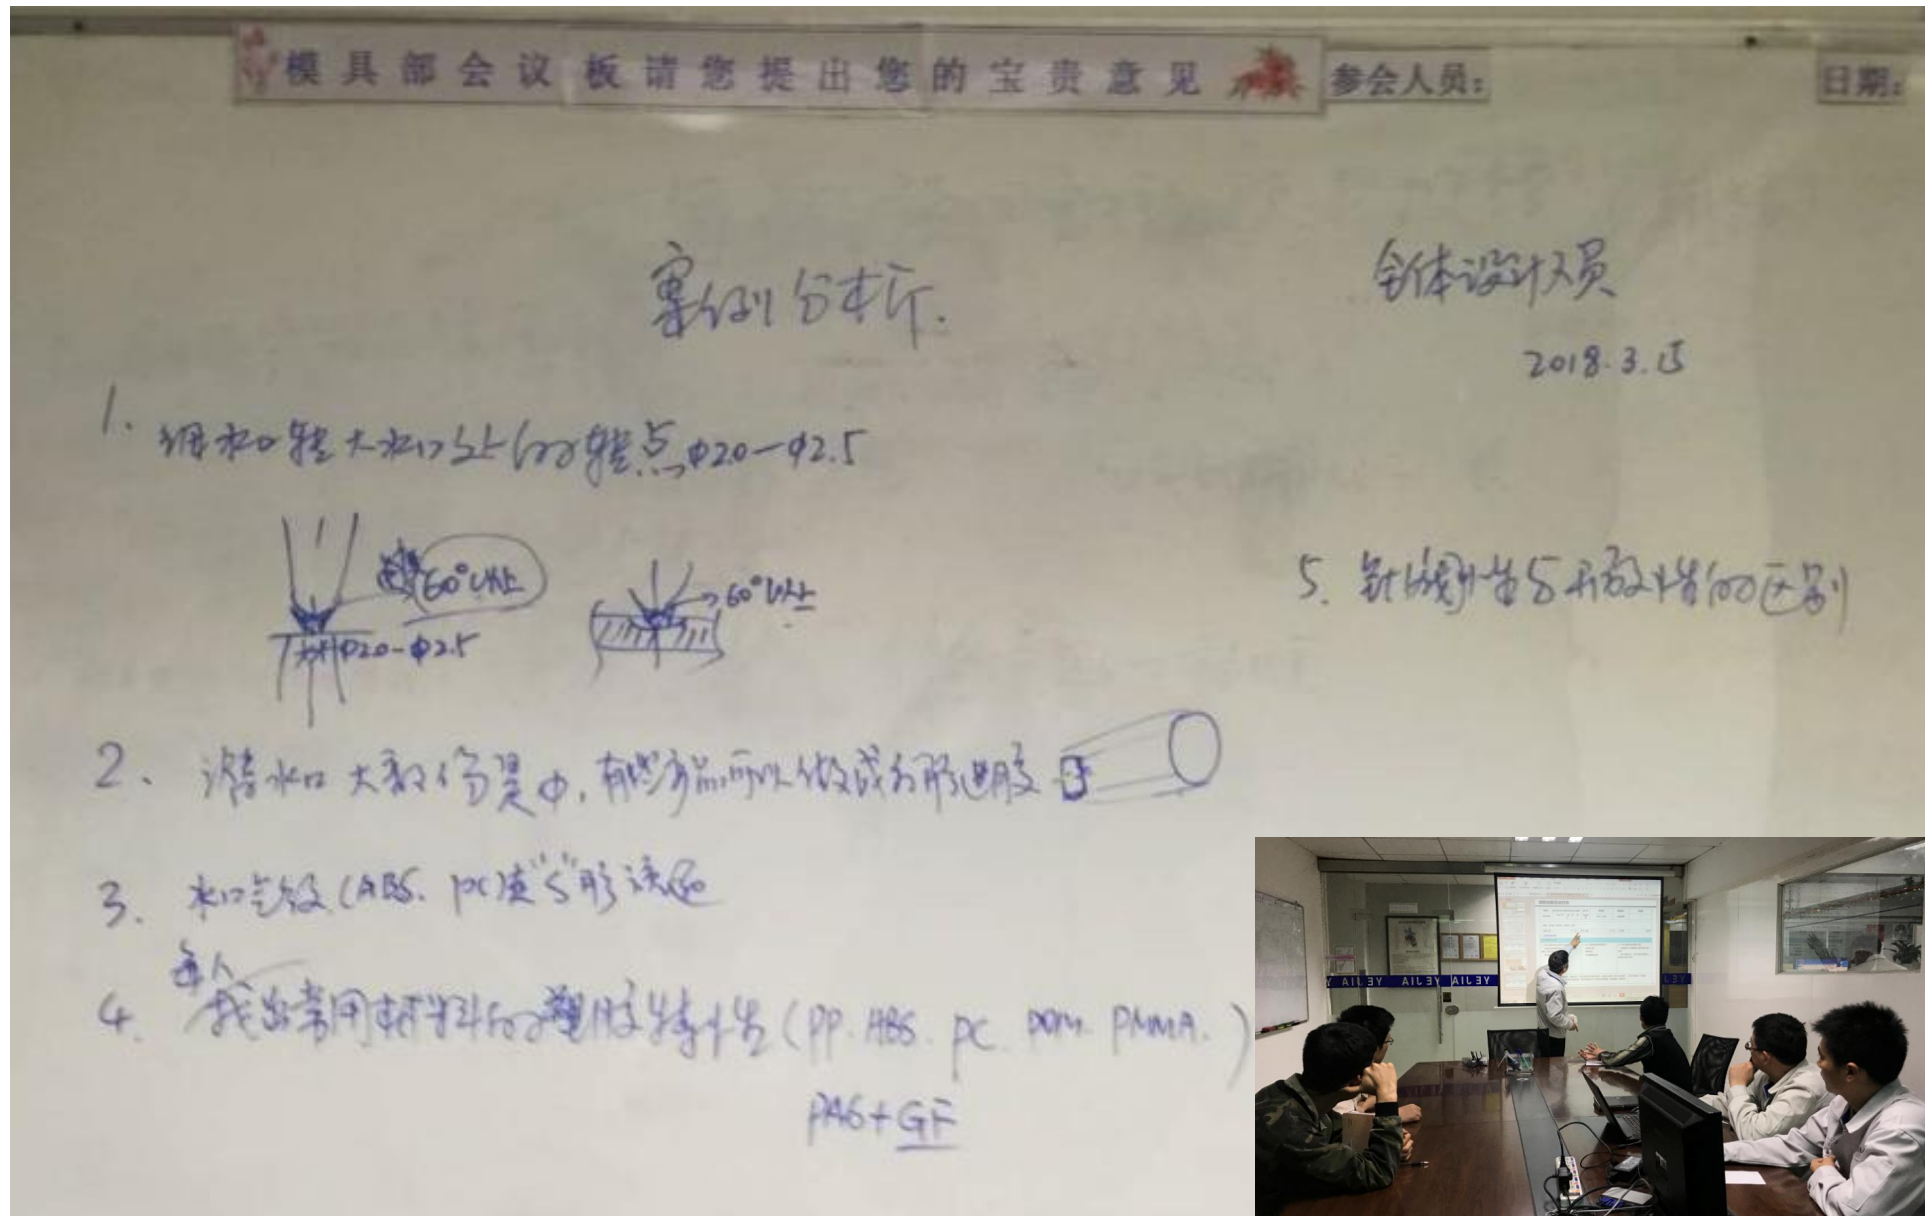 模具部会议板请您提出您的宝贵意见
参会人员:
日期:
案例分析.
全体设计人员
2018.3.15
1. 细水口转大水口处的转点φ2.0-φ2.5
60°以上
φ2.0-φ2.5
60°以上
5. 针阀性与开放性的区别
2、潜水口 大部份翼中,有些产品可以做成方形进胶
3. 水口 (ABS. PC)走"S"形流道
每人
4. 找出常用材料的塑胶特性(PP. ABS. PC. POM. PMMA. )
PA6+GF
YEJIA YEJIA YEJIA